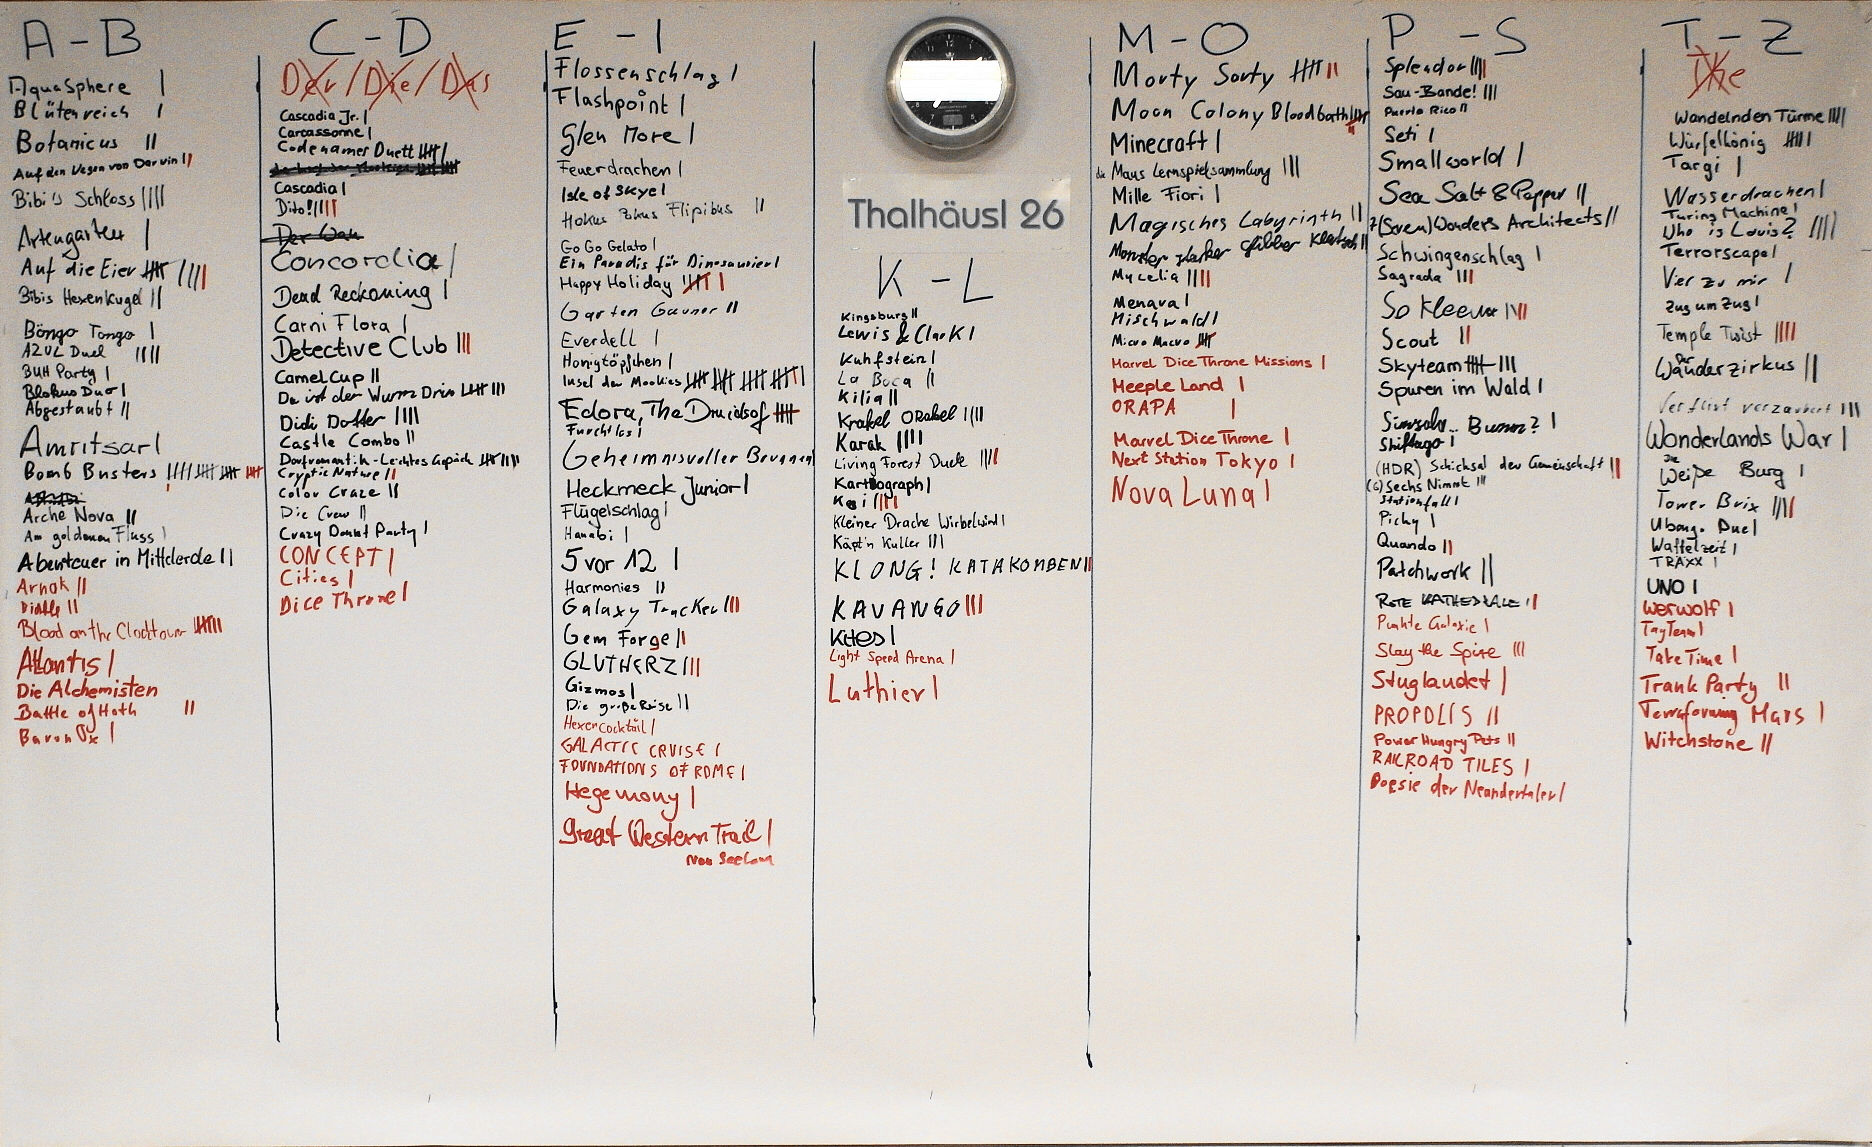 A-B
AquaSphere |
Blütenreich |
Botanicus ||
Auf den Wegen von Darwin ||
Bibi's Schloss ||||
Artengarten |
Auf die Eier
Bibis Hexenkugel ||
Bongo Tongo |
AZUL Duel ||||
BUH Party |
Blokus Duo |
Abgestaubt ||
Amritsar |
Bomb Busters
Arche Nova ||
Am goldenen Fluss |
Abenteuer in Mittelerde ||
Arnak ||
Blood on the Clocktower
Atlantis |
Die Alchemisten
Battle of Hoth ||
Baron Ox |
C-D
Der/Die/Das
Cascadia Jr. |
Carcassonne |
Codenames Duett
Cascadia |
Dito!
Concordia |
Dead Reckoning |
Carni Flora |
Detective Club |||
Camel Cup ||
Da ist der Wurm Drin
Didi Dotter ||||
Castle Combo ||
Dorfromantik-Leichtes Gepäck
Cryptic Nature ||
Color Craze ||
Die Crew ||
Crazy Donut Party |
CONCEPT |
Cities |
Dice Throne |
E-I
Flossenschlag |
Flashpoint |
Glen More |
Feuerdrachen |
Isle of Skye |
Hokus Pokus Flipibus ||
Go Go Gelato |
Ein Paradis für Dinosaurier |
Happy Holiday
Garten Gauner ||
Everdell |
Honigtöpfchen |
Insel der Mookies
Edora, The Druids of
Furchtlos |
Geheimnisvoller Brunnen |
Heckmeck Junior |
Flügelschlag |
Hanabi |
5 vor 12 |
Harmonies ||
Galaxy Trucker |||
Gem Forge ||
GLUTHERZ |||
Gizmos |
Die große Reise ||
Hexencocktail |
GALACTIC CRUISE |
FOUNDATIONS OF ROME |
Hegemony |
Great Western Trail |
Thalhäusl 26
K-L
Kingsburg ||
Lewis & Clark |
Kuhfstein |
La Boca ||
Kilia ||
Krakel ORakel ||||
Karak ||||
Living Forest Duell ||||
Kartograph |
Koi
Kleiner Drache Wirbelwind |
Käpt'n Kuller |||
KLONG! KATAKOMBEN ||
KAVANGO |||
Kites |
Light Speed Arena |
Luthier |
M-O
Morty Sorty
Moon Colony Bloodbath
Minecraft |
die Maus Lernspielsammlung |||
Mille Fiori |
Magisches Labyrinth ||
Monster starker Glibber Klatsch ||
Mycelia ||||
Menara |
Mischwald |
Micro Macro
Marvel Dice Throne Missions |
Meeple Land |
ORAPA |
Marvel Dice Throne |
Next Station Tokyo |
Nova Luna |
P-S
Splendor ||||
Sau-Bande! |||
Puerto Rico ||
Seti |
Smallworld |
Sea Salt & Papper ||
7(Seven) Wonders Architects ||
Schwingenschlag |
Sagrada |||
So Kleever ||||
Scout ||
Skyteam
Spuren im Wald |
Simsala.. Bumm? |
Shikago |
(HDR) Schicksal der Gemeinschaft ||
(6) Sechs Nimmt |||
Stationfall |
Pichy |
Quando ||
Patchwork ||
ROTE KATHEDRALE ||
Punkte Galaxie |
Slay the Spire |||
Stuglandet |
PROPOLIS ||
Power Hungry Pets ||
RAILROAD TILES |
Poesie der Neandertaler |
T-Z
Die
Wandelnden Türme ||||
Würfelkönig
Targi |
Wasserdrachen |
Turing Machine |
Who is Louis? ||||
Terrorscape |
Vier zu mir |
Zug um Zug |
Temple Twist ||||
Der
Wanderzirkus ||
Verflixt verzaubert |||
Wonderlands War |
Die
Weiße Burg |
Tower Brix ||||
Ubongo Duel |
Waffelzeit |
TRAXX |
UNO |
Werwolf |
TagTeam |
Take Time |
Trank Party ||
Terraforming Mars |
Witchstone ||